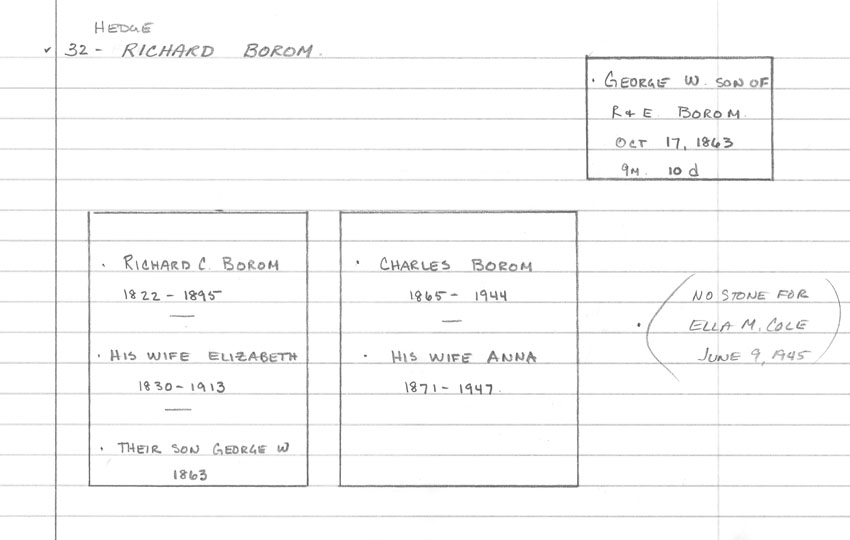 HEDGE
✓ 32 - RICHARD BOROM.
· GEORGE W. SON OF
R & E BOROM.
OCT 17, 1863
9M. 10 d
· RICHARD C. BOROM
1822 - 1895
—
· HIS WIFE ELIZABETH
1830 - 1913
—
· THEIR SON GEORGE W
1863
· CHARLES BOROM
1865 - 1944
—
· HIS WIFE ANNA
1871 - 1947.
· (NO STONE FOR
ELLA M. COLE
JUNE 9, 1945)